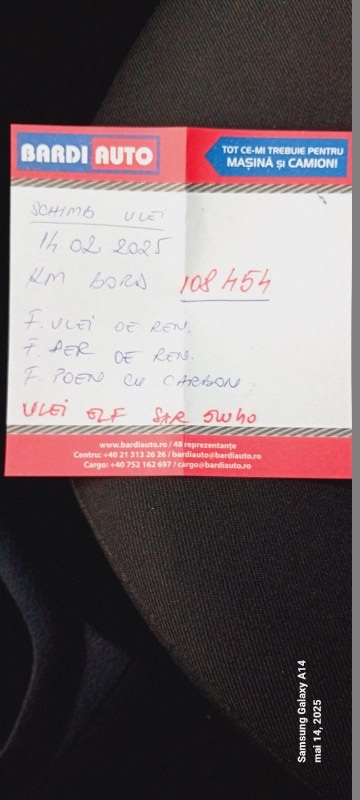 BARDI AUTO
TOT CE-MI TREBUIE PENTRU
MAȘINĂ și CAMION!
SCHIMB ULEI
14.02 2025
KM BORD 108454
F. ULEI DE REN.
F. AER DE REN.
F. POEN CU CARBON
ULEI ELF 5W40
www.bardiauto.ro / 48 reprezentanțe
Centru: +40 21 313 26 26 / bardiauto@bardiauto.ro
Cargo: +40 752 162 697 / cargo@bardiauto.ro
Samsung Galaxy A14
mai 14, 2025